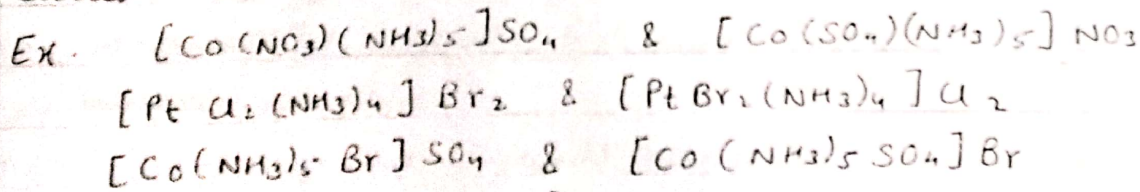 Ex. [Co(NO3)(NH3)5]SO4 & [Co(SO4)(NH3)5]NO3
[Pt Cl2(NH3)4]Br2 & [Pt Br2(NH3)4]Cl2
[Co(NH3)5 Br]SO4 & [Co(NH3)5 SO4]Br